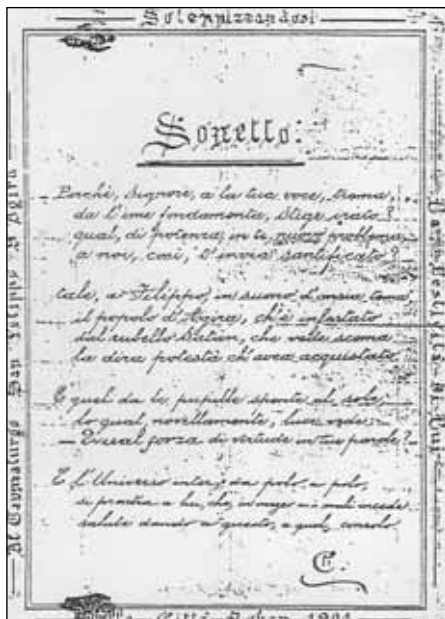 Solennizzandosi
Sonetto:
Perchè, Signore, a la tua voce, trema,
da l'ime fondamenta, Stige irato?
qual, di potenza, in te nuovo problema,
a noi, così, t'invia santificato?
tale, a Filippo, in suono d'ansia tema
il popolo d'Agira, ch'è infestato
dal rubello Satàn, che vede scema
la dira potestà ch'avea acquistato.
E quel da le pupille spente al sole,
lo qual, novellamente, luce vede:
— Di forza di vertude in tue parole?
E l'Universo inter, da polo a polo,
si prostra a lui, che, in mali incede
salute dando a questo, a quel, consolo
C.
Al Taumaturgo San Filippo D'Agira
1901